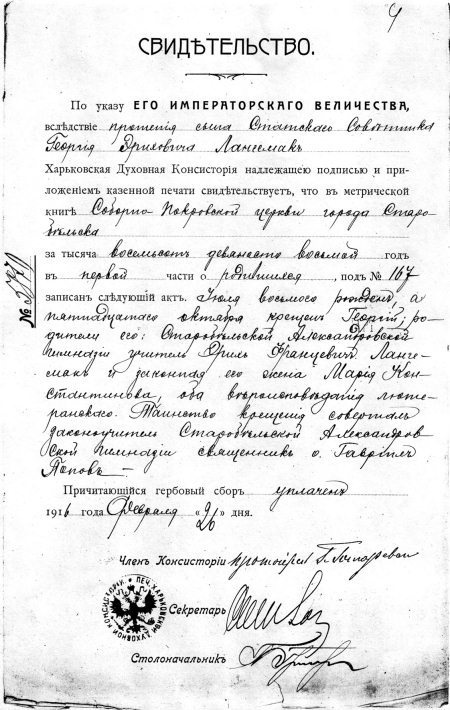 СВИДѢТЕЛЬСТВО.
По указу ЕГО ИМПЕРАТОРСКАГО ВЕЛИЧЕСТВА,
вслѣдствіе прошенія сына Статскаго Совѣтника
Георгія Эриховича Лангемак
Харьковская Духовная Консисторія надлежащею подписью и при-
ложеніемъ казенной печати свидѣтельствуетъ, что въ метрической
книгѣ Соборно-Покровской церкви города Старо-
бѣльска
за тысяча восемьсот девяносто восьмой годъ
въ первой части о родившихся, подъ № 167
записанъ слѣдующій актъ. Іюля восьмого рожденъ, а
пятнадцатаго октября крещенъ Георгій; ро-
дители его: Старобѣльской Александровской
гимназіи учитель Эрихъ Францевичъ Ланге-
макъ и законная его жена Марія Кон-
стантинова, оба вѣроисповѣданія люте-
ранскаго. Таинство крещенія совершалъ
законоучитель Старобѣльской Александров-
ской гимназіи священникъ о. Гавріилъ
Поповъ —
Причитающійся гербовый сборъ уплаченъ
1916 года Февраля « 26 » дня.
Членъ Консисторіи протоіерей
Секретарь
Столоначальникъ
ПЕЧ. ХАРЬКОВСКОЙ ДУХОВНОЙ КОНСИСТОРІИ